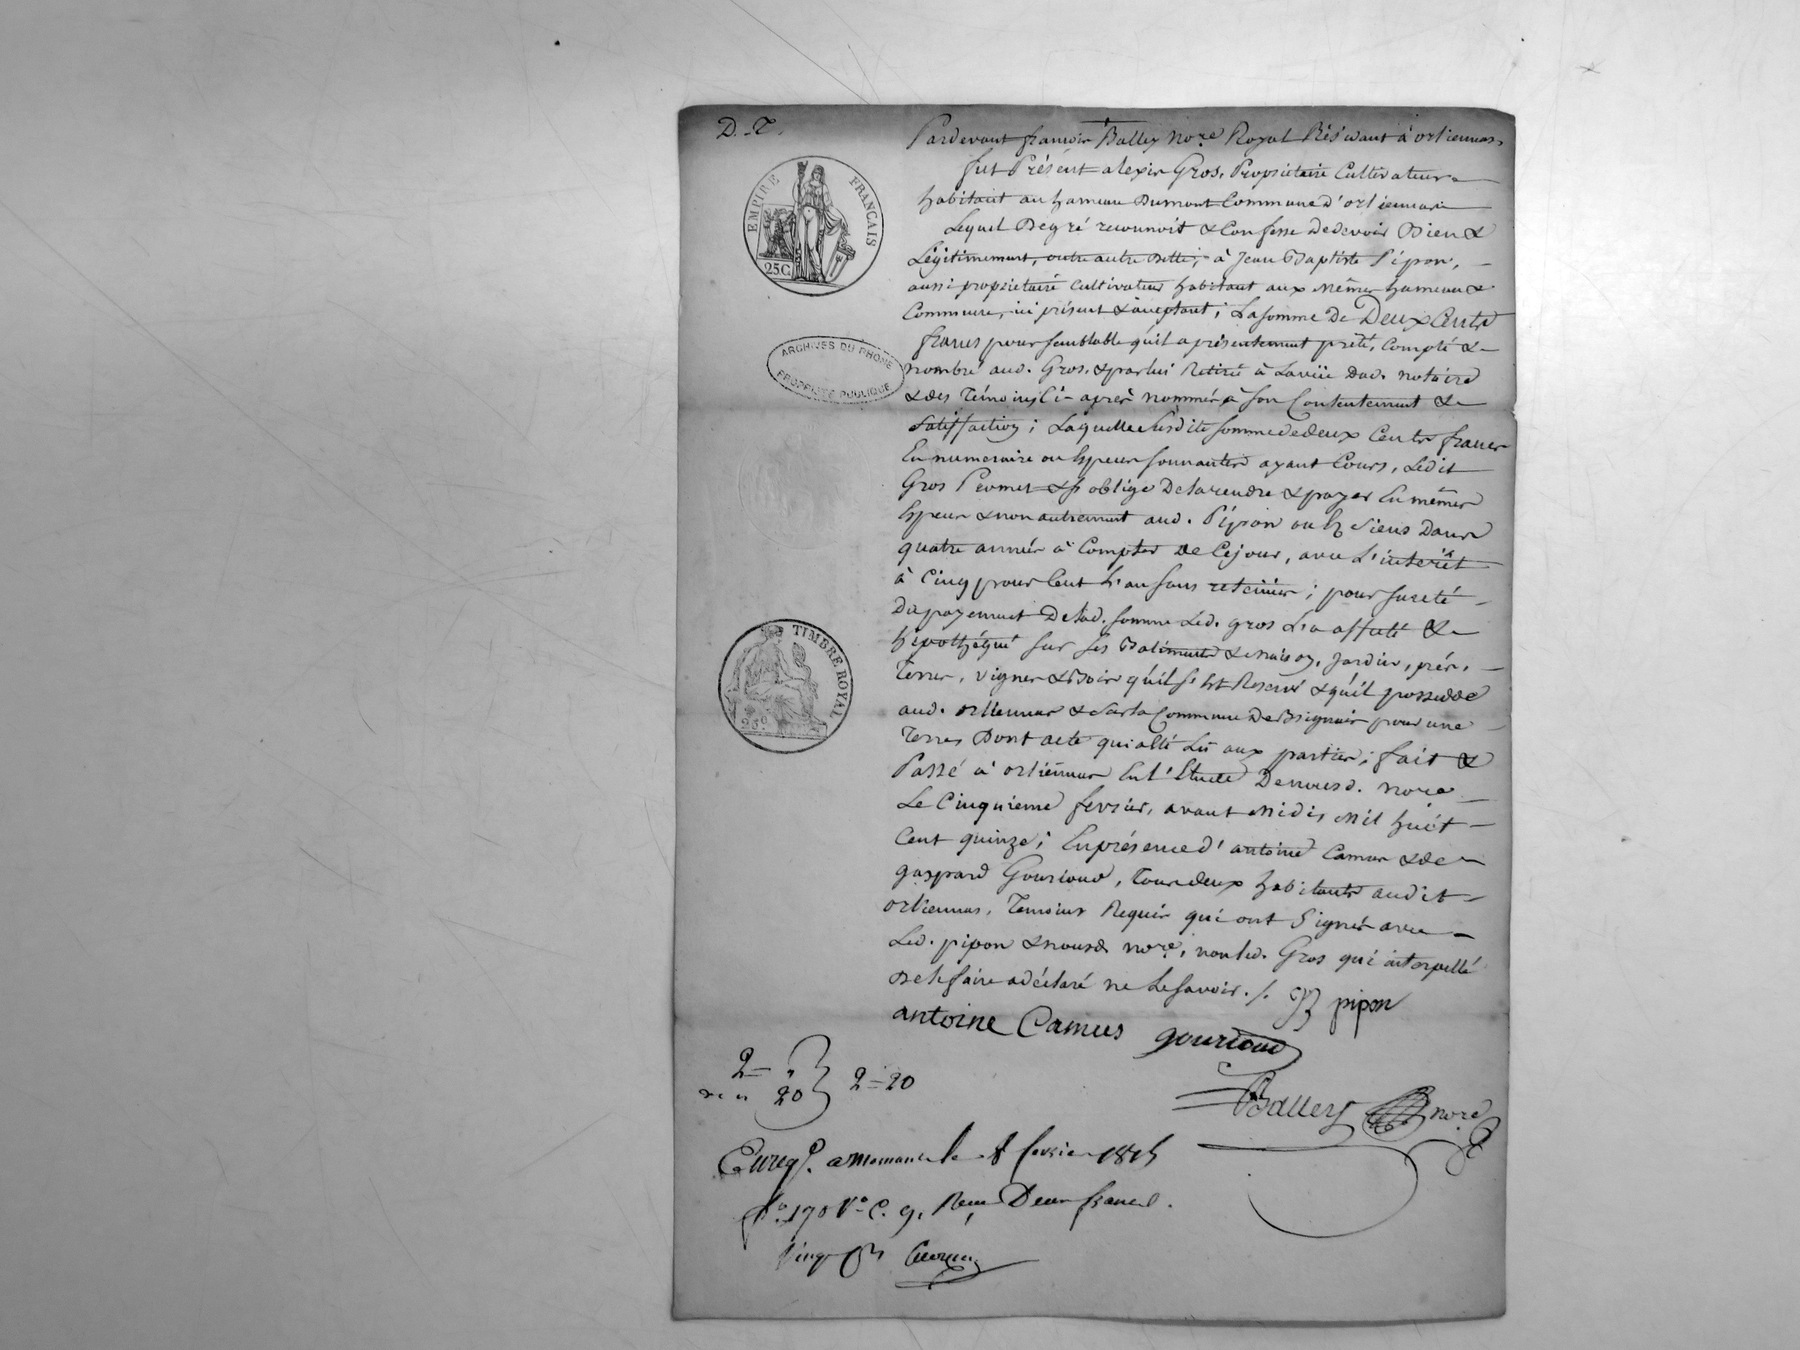 D.-T.
Pardevant françois Balley No.re Royal Résidant à orliennas,
fut Présent alexis Gros, Propriétaire Cultivateur
habitant au hameau Dumont Commune d'orliennas
Lequel Degré reconnoit & Confesse Dedevoir Bien &
Légitimement, outre autre Dette, à Jean Baptiste Pipon,
aussi propriétaire Cultivateur habitant aux mêmes hameau &
Commune, ici présent & aceptant; La somme De Deux Cents
francs pour semblable qu'il a présentement prêté, Compté &
nombré aud. Gros, & par lui Retiré à La vüe Dud. notaire
& des Témoins Ci-après nommés à son Contentement &
Satisfaction; Laquelle Susdite somme de deux Cents francs
En numeraire ou Espèces sonnantes ayant Cours, Ledit
Gros Promet & s'oblige De la rendre & payer En mêmes
Espèces & non autrement aud. Pipon ou Es Siens Dans
quatre années à Compter de Cejour, avec L'intérêt
à Cinq pour Cent L'an sans retenüe; pour sureté
Du payement De lad. somme Led. gros L'a affecté &
hipothéqué sur ses Batiments & maison, Jardin, prés,
Terres, vignes & Bois qu'il s'est Réservé & qu'il possedde
aud. orliennas & sur la Commune De Brignais pour une
Terre, Dont acte qui a Eté Lu aux parties; fait &
Passé à orliennas En L'Etude De nousd. no.re
Le Cinquieme fevrier, avant Midi, Mil huit
Cent quinze; En présence d'antoine Camus & de
gaspard Gourioud, Tous deux habitants audit
orliennas, Temoins Requis qui ont Signés avec
Led. pipon & nousd. no.re, non led. Gros qui interpellé
De le faire a déclaré ne Le savoir. /. JB pipon
antoine Camus gourioud
Balley no.re
2 = "
20
2 = 20
Enreg.é a Mornant le 8 fevrier 1815
f.o 190 V.o C. 9. Reçu Deux francs
vingt C.mes
EMPIRE FRANÇAIS
25C
ARCHIVES DU RHONE
PROPRIÉTÉ PUBLIQUE
TIMBRE ROYAL
25c